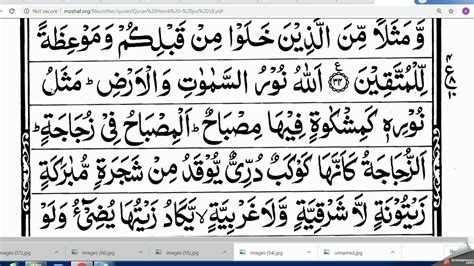 moshaf.org/files/other/quran/Quran%20Hendi%20-%20Joz%2018.pdf
وَّمَثَلًا مِّنَ الَّذِيْنَ خَلَوْا مِنْ قَبْلِكُمْ وَمَوْعِظَةً
لِّلْمُتَّقِيْنَ ﴿۳۴﴾ اَللّٰهُ نُوْرُ السَّمٰوٰتِ وَالْاَرْضِ ؕ مَثَلُ
نُوْرِهٖ كَمِشْكٰوةٍ فِيْهَا مِصْبَاحٌ ؕ اَلْمِصْبَاحُ فِيْ زُجَاجَةٍ ؕ
اَلزُّجَاجَةُ كَاَنَّهَا كَوْكَبٌ دُرِّيٌّ يُّوْقَدُ مِنْ شَجَرَةٍ مُّبٰرَكَةٍ
زَيْتُوْنَةٍ لَّا شَرْقِيَّةٍ وَّلَا غَرْبِيَّةٍ ۙ يَّكَادُ زَيْتُهَا يُضِيْٓءُ وَلَوْ
images (37).jpg images (56).jpg images (55).jpg images (34).jpg unnamed.jpg